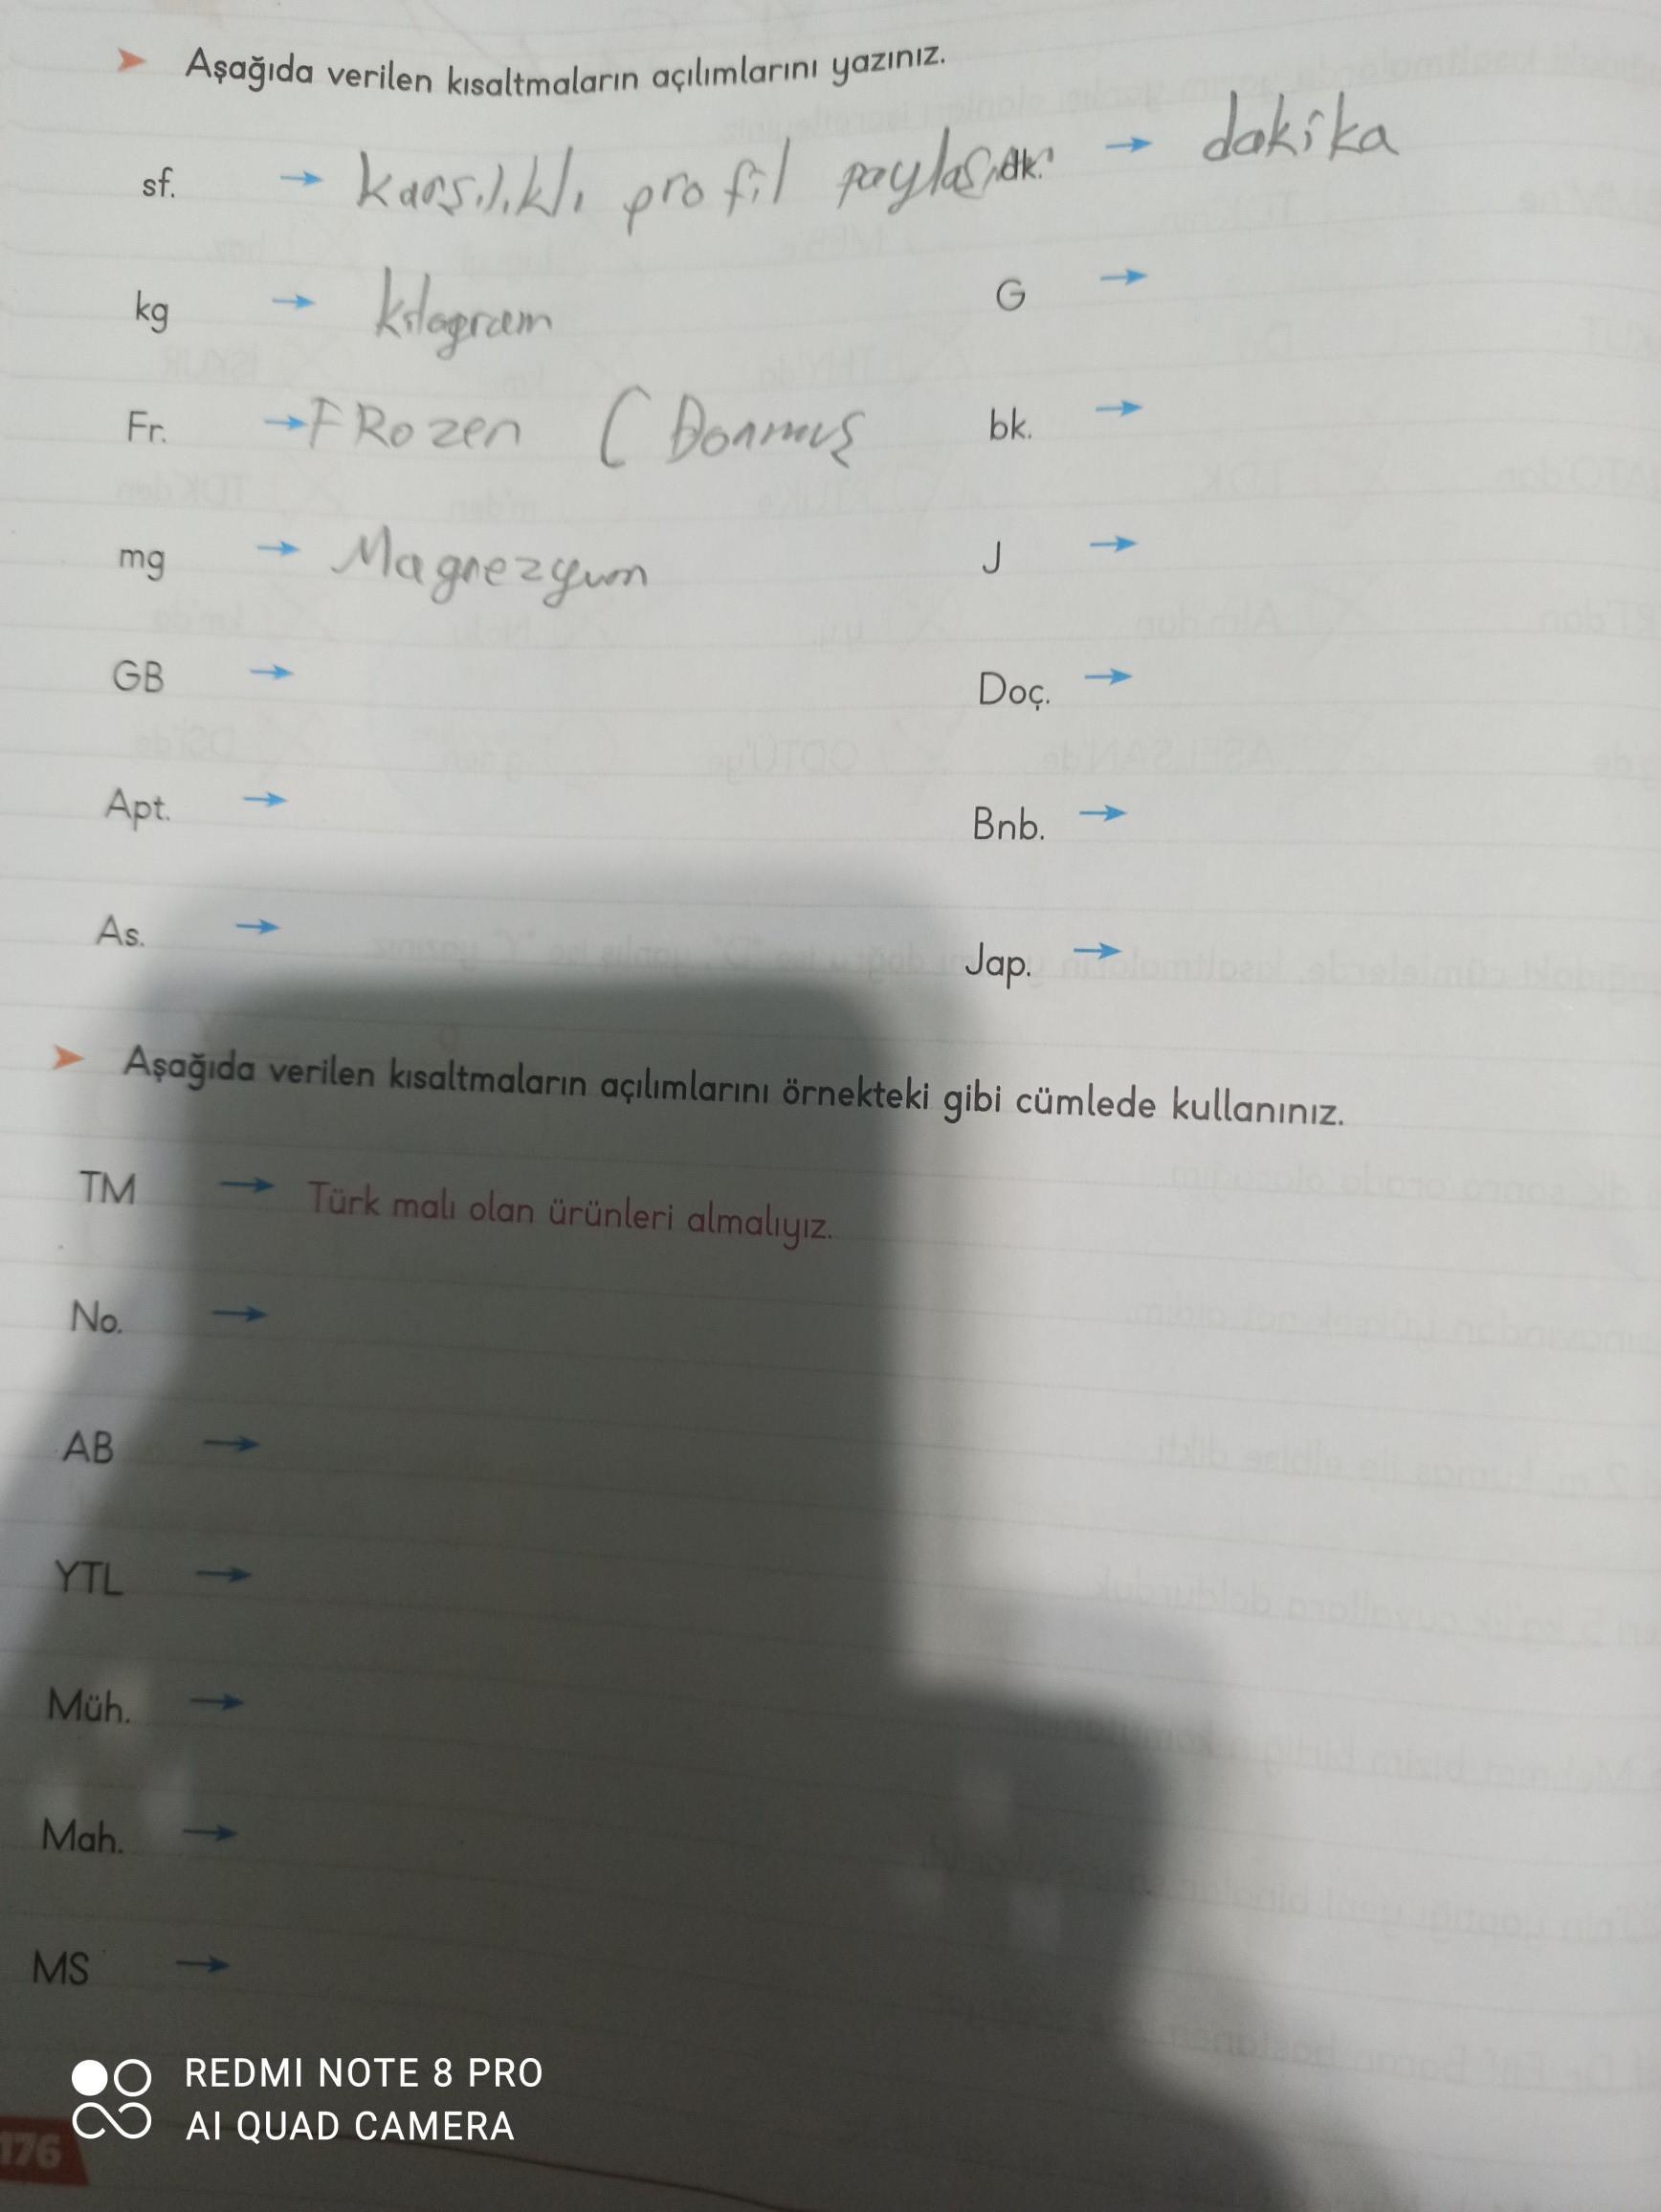 Aşağıda verilen kısaltmaların açılımlarını yazınız.
sf. → karşılıklı profil paylaşım
dk. → dakika
kg → kilogram
G →
Fr. → FRozen ( Donmuş
bk. →
mg → Magnezyum
J →
GB →
Doç. →
Apt. →
Bnb. →
As. →
Jap. →
Aşağıda verilen kısaltmaların açılımlarını örnekteki gibi cümlede kullanınız.
TM → Türk malı olan ürünleri almalıyız.
No. →
AB →
YTL →
Müh. →
Mah. →
MS →
REDMI NOTE 8 PRO
AI QUAD CAMERA
176